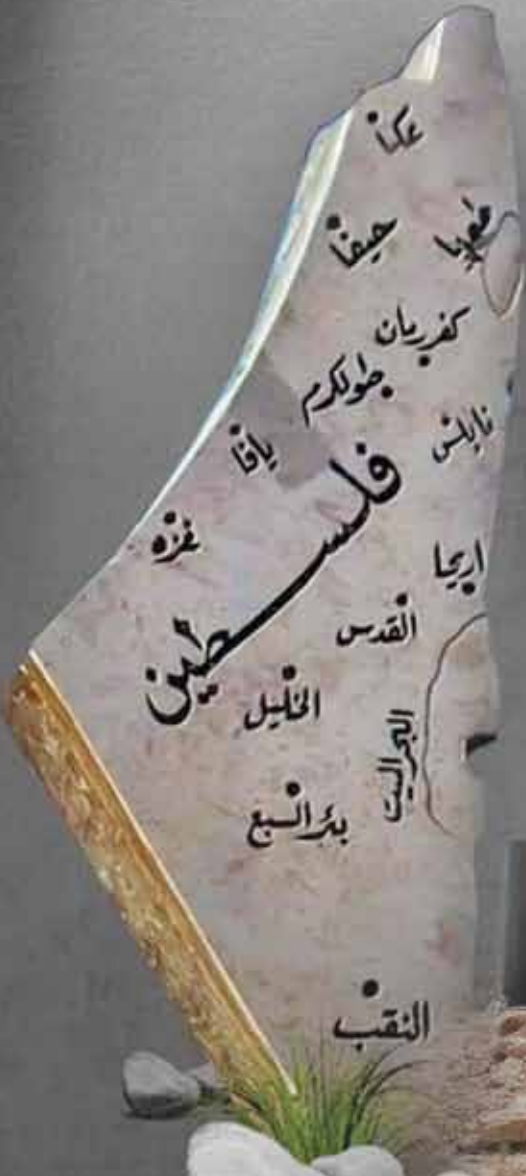 عكا
حيفا
كفر رمان
طولكرم
نابلس
يافا
فلسطين
غزه
اريحا
القدس
الخليل
البحر الميت
بئر السبع
النقب